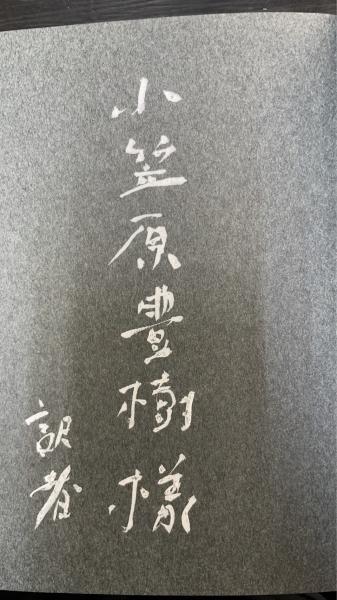 小笠原豊樹様
訳者